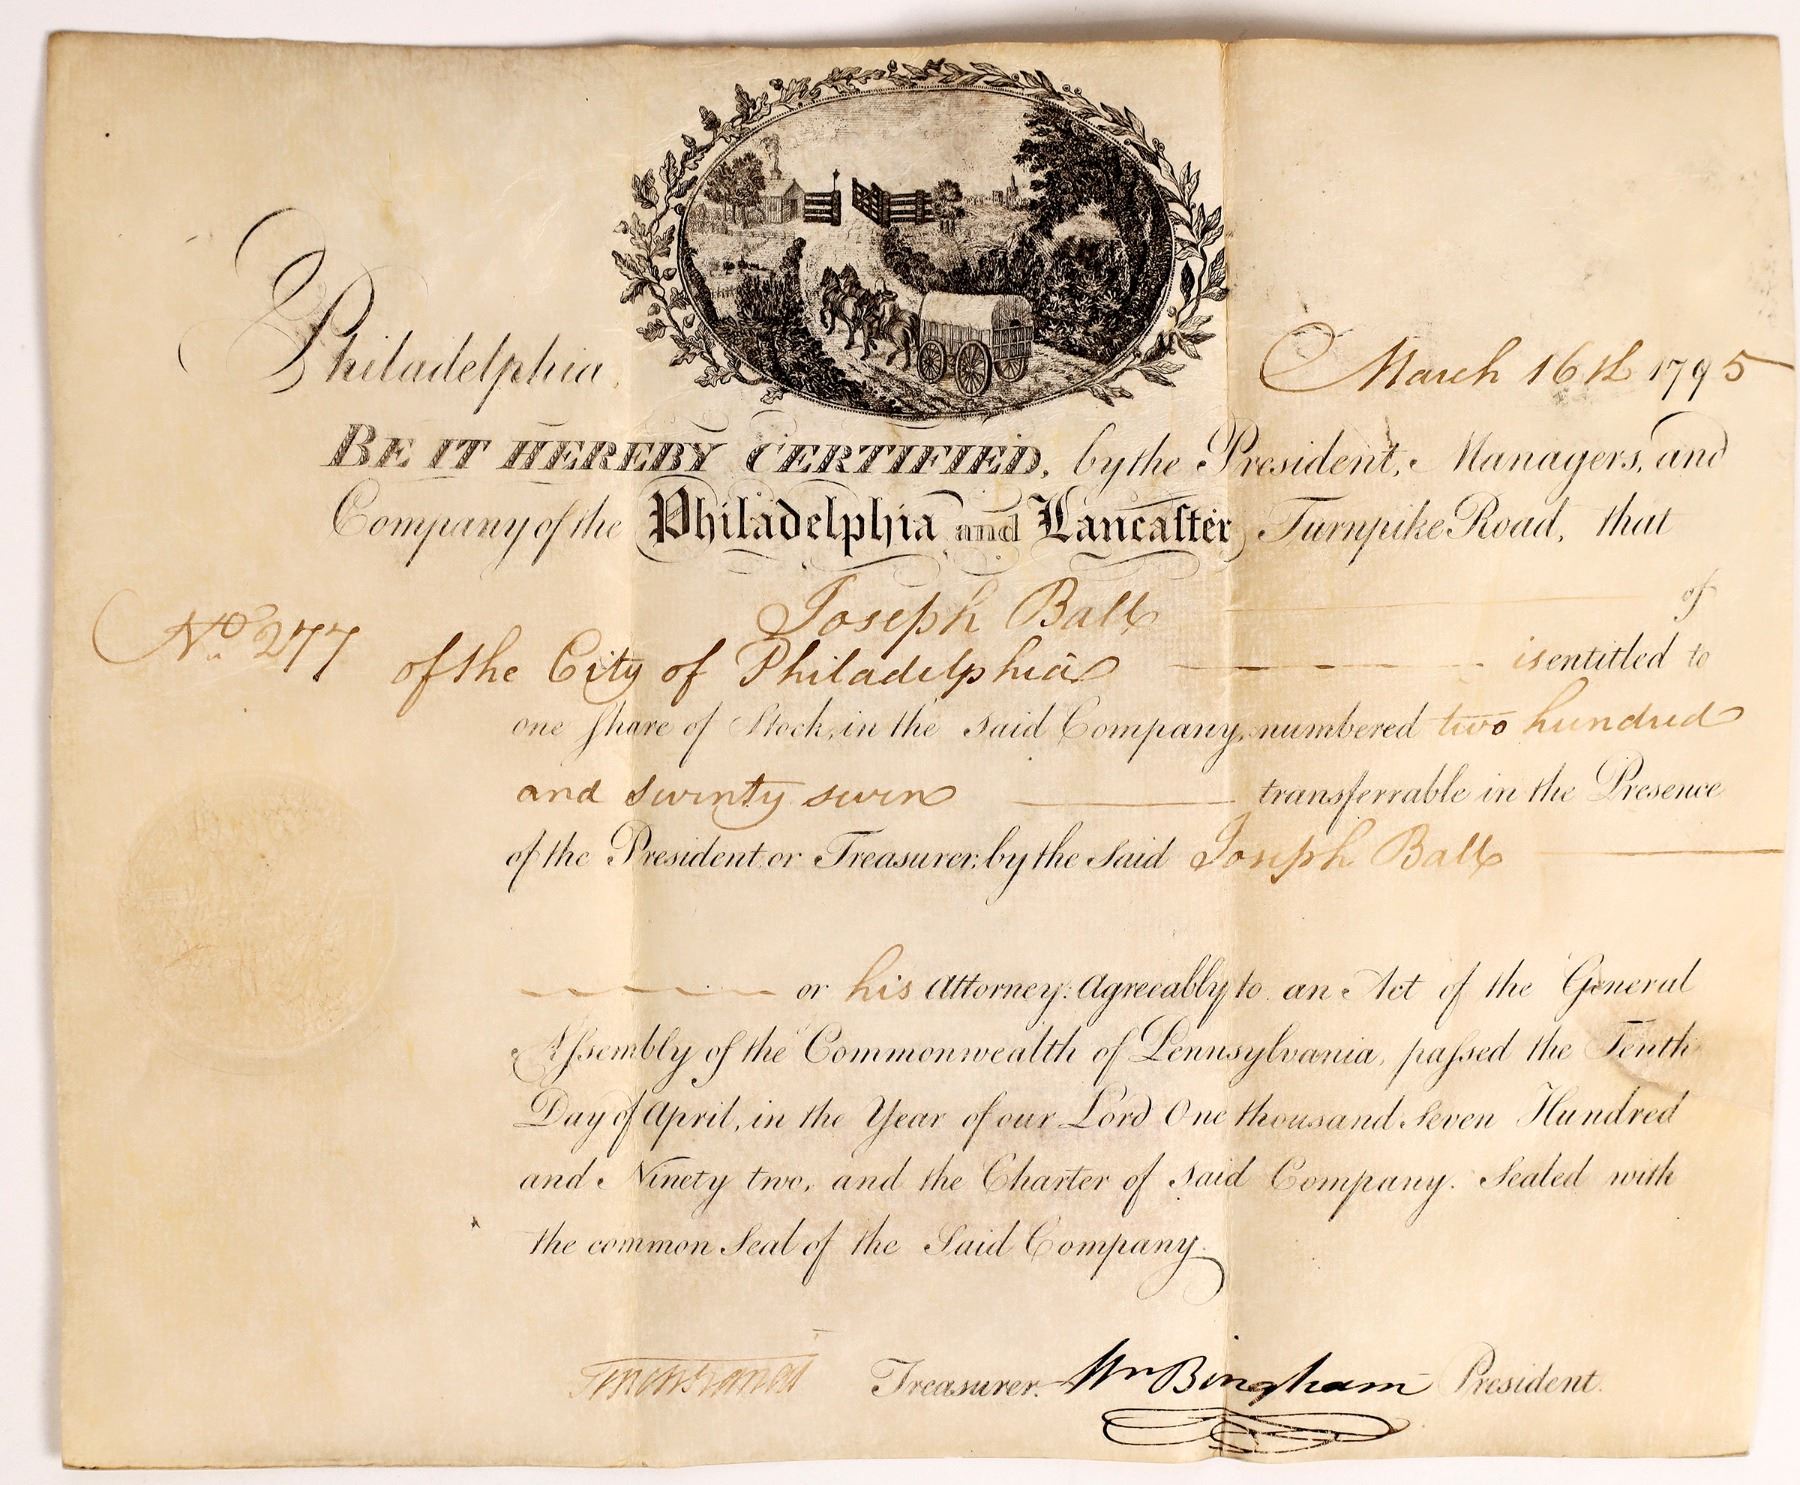 Philadelphia March 16th 1795
BE IT HEREBY CERTIFIED, by the President, Managers, and
Company of the Philadelphia and Lancaſter Turnpike Road, that
Joseph Ball of
No 277
of the City of Philadelphia is entitled to
one ſhare of Stock, in the said Company, numbered two hundred
and seventy seven transferrable in the Presence
of the President or Treasurer, by the Said Joseph Ball
or his Attorney: Agreeably to an Act of the General
Aſsembly of the Commonwealth of Pennsylvania, paſsed the Tenth
Day of April, in the Year of our Lord One thousand Seven Hundred
and Ninety two, and the Charter of said Company. Sealed with
the common Seal of the Said Company.
Treasurer. Wm Bingham President.